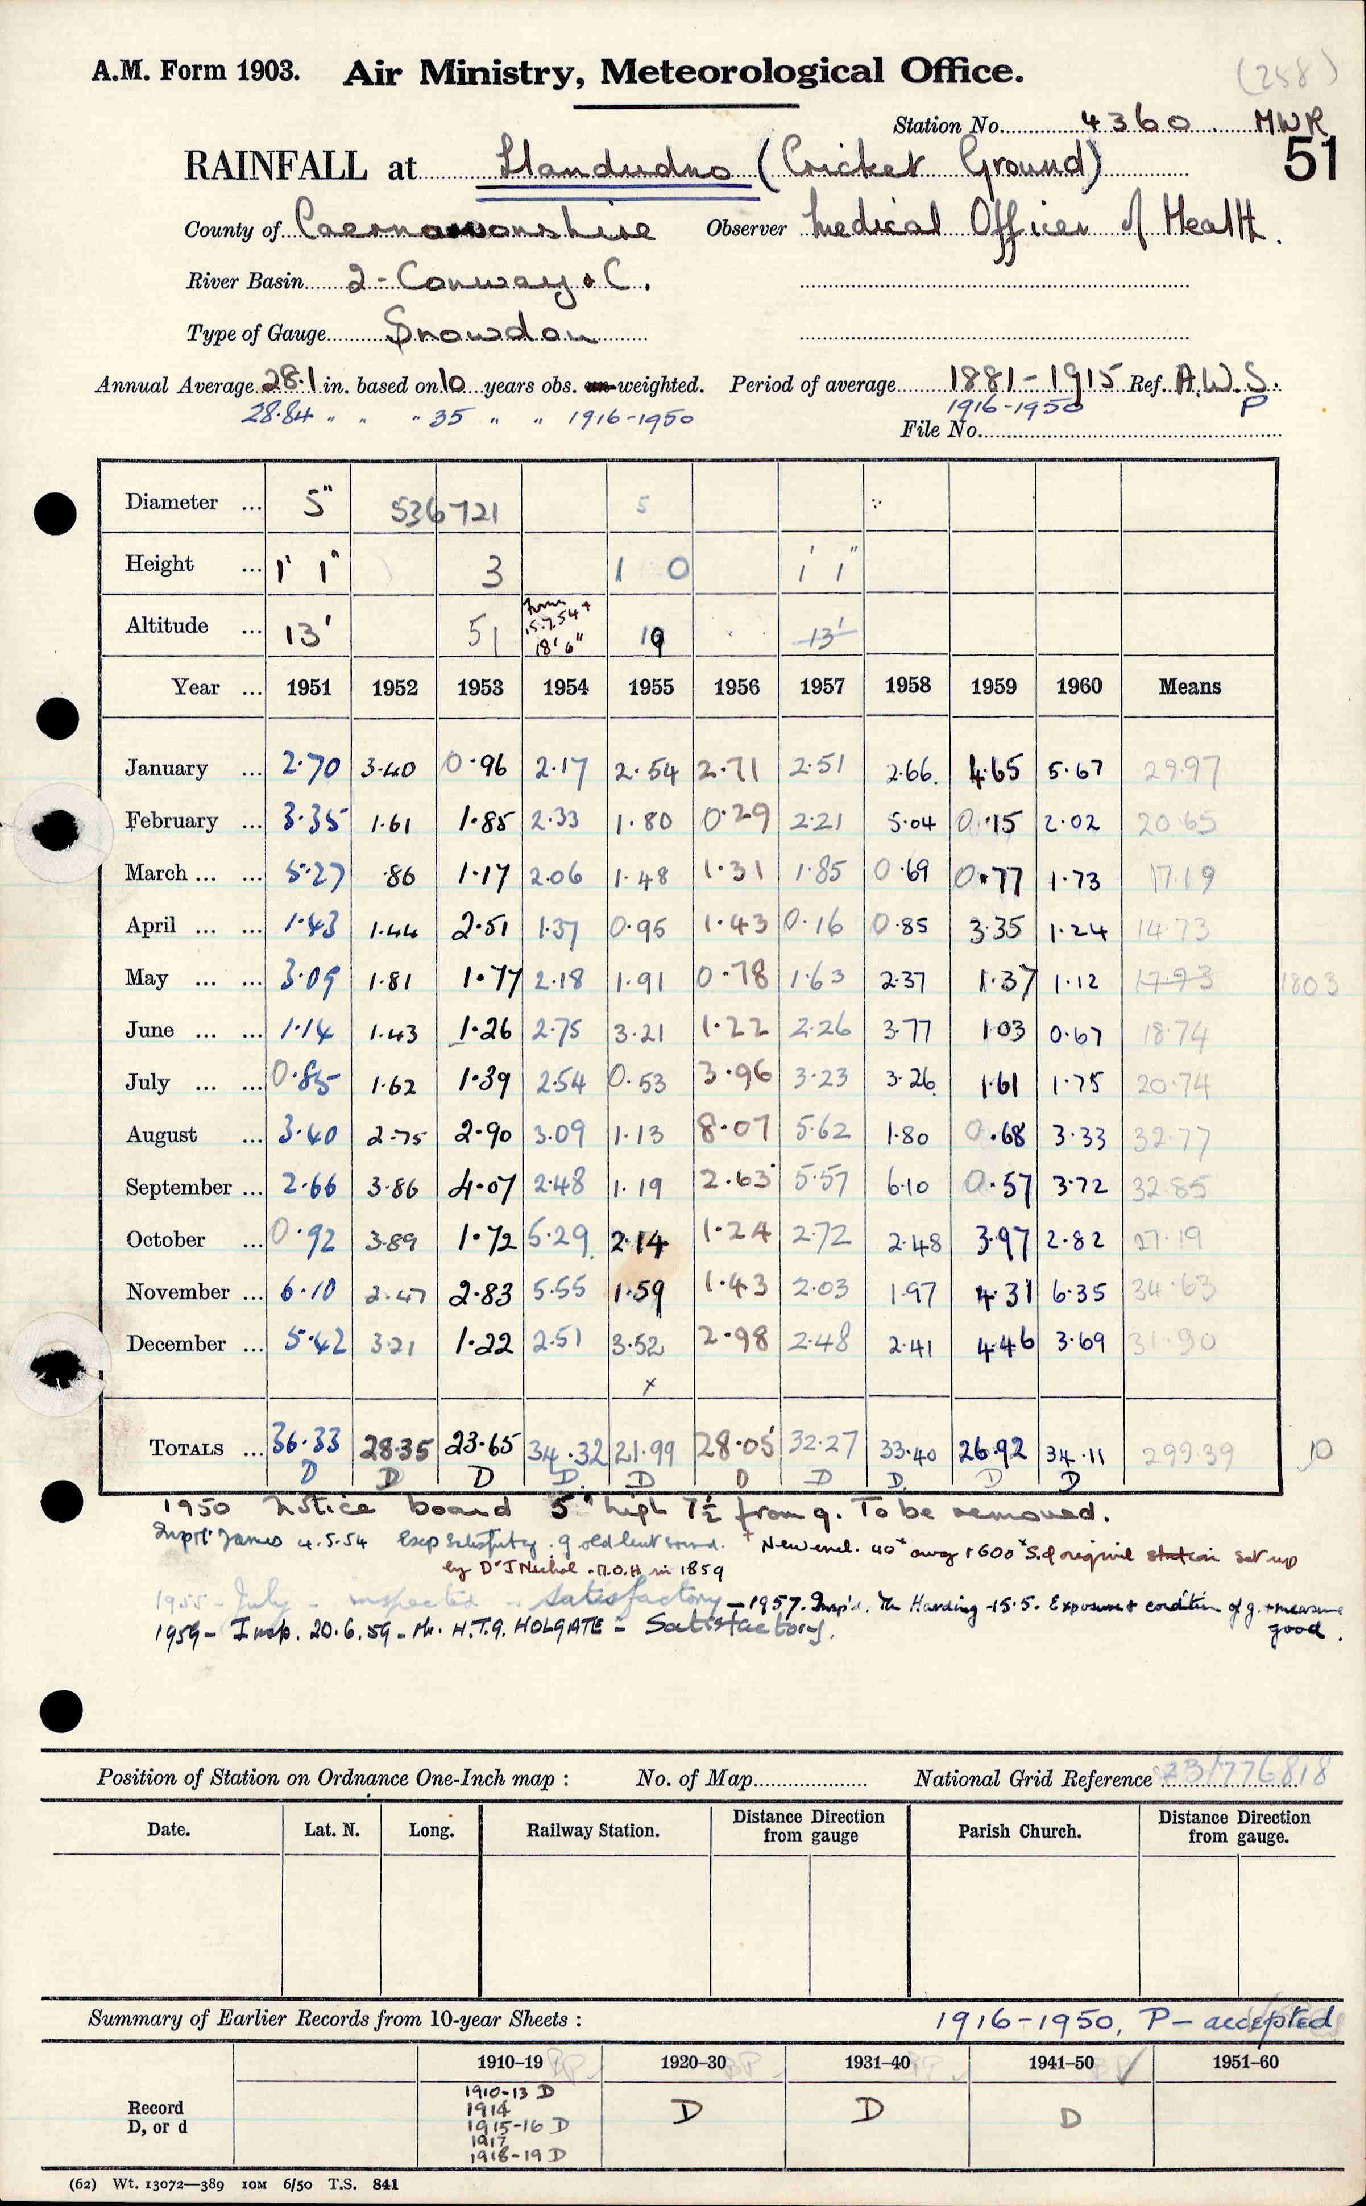 (258)
A.M. Form 1903. Air Ministry, Meteorological Office.
Station No. 4360. MWR
RAINFALL at Llandudno (Cricket Ground) 51
County of Caernarvonshire Observer Medical Officer of Health.
River Basin 2 - Conway & C.
Type of Gauge Snowdon
Annual Average 28.1 in. based on 10 years obs. un-weighted. Period of average 1881-1915 Ref. A.W.S.
28.84 " " " 35 " " 1916-1950 1916-1950 P
File No.
Diameter ... 5" 536721 5
Height ... 1' 1" 3 1 0 1' 1"
Altitude ... 13' 51 from 15.7.54 + 18' 6" 19 13'
Year ... 1951 1952 1953 1954 1955 1956 1957 1958 1959 1960 Means
January ... 2.70 3.40 0.96 2.17 2.54 2.71 2.51 2.66. 4.65 5.67 29.97
February ... 3.35 1.61 1.85 2.33 1.80 0.29 2.21 5.04 0.15 2.02 20.65
March ... ... 5.27 .86 1.17 2.06 1.48 1.31 1.85 0.69 0.77 1.73 17.19
April ... ... 1.43 1.44 2.51 1.37 0.95 1.43 0.16 0.85 3.35 1.24 14.73
May ... ... 3.09 1.81 1.77 2.18 1.91 0.78 1.63 2.37 1.37 1.12 17.93 1803
June ... ... 1.14 1.43 1.26 2.75 3.21 1.22 2.26 3.77 1.03 0.67 18.74
July ... ... 0.85 1.62 1.39 2.54 0.53 3.96 3.23 3.26. 1.61 1.75 20.74
August ... 3.40 2.75 2.90 3.09 1.13 8.07 5.62 1.80 0.68 3.33 32.77
September ... 2.66 3.86 4.07 2.48 1.19 2.63 5.57 6.10 0.57 3.72 32.85
October ... 0.92 3.89 1.72 5.29. 2.14 1.24 2.72 2.48 3.97 2.82 27.19
November ... 6.10 2.47 2.83 5.55 1.59 1.43 2.03 1.97 4.31 6.35 34.63
December ... 5.42 3.21 1.22 2.51 3.52 2.98 2.48 2.41 4.46 3.69 31.90
x
TOTALS ... 36.33 28.35 23.65 34.32 21.99 28.05 32.27 33.40 26.92 34.11 299.39 10
D D D D. D D D D. D D
1950 Notice board 5" high 7½ from g. To be removed.
Insp Mr James 4.5.54 Exp Satisfcty. g old but sound. + New encl. 40x away & 600x S. of original station set up
by Dr J Nichol. M.O.H in 1859
1955 - July - inspected - satisfactory - 1957. Insp'd. Mr Harding - 15.5. Exposure & condition of g. + measure
good.
1959 - Insp. 20.6.59. Mr. H.T.G. HOLGATE - Satisfactory.
Position of Station on Ordnance One-Inch map : No. of Map National Grid Reference 23/776818
Date. Lat. N. Long. Railway Station. Distance Direction from gauge Parish Church. Distance Direction from gauge.
Summary of Earlier Records from 10-year Sheets : 1916-1950, P - accepted
1910-19 1920-30 1931-40 1941-50 1951-60
Record D, or d
1910-13 D
1914
1915-16 D
1917
1918-19 D
D D D
(62) Wt. 13072—389 10M 6/50 T.S. 841